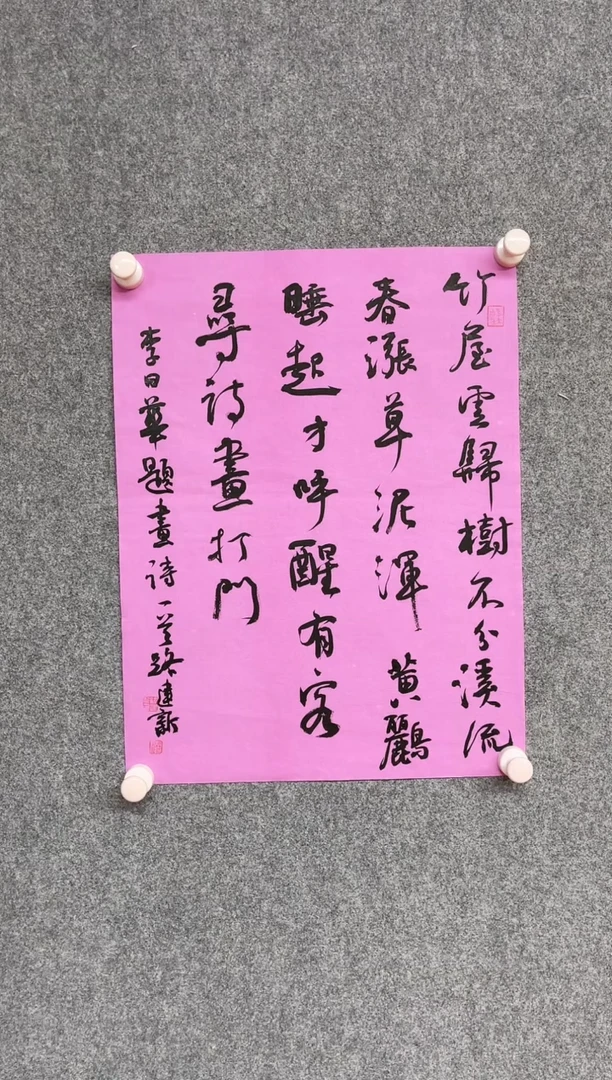 竹屋雲歸樹不分溪流
春漲草泥渾黃鸝
睡起才呼醒有客
尋詩畫打門
李日華題畫詩一首路建新